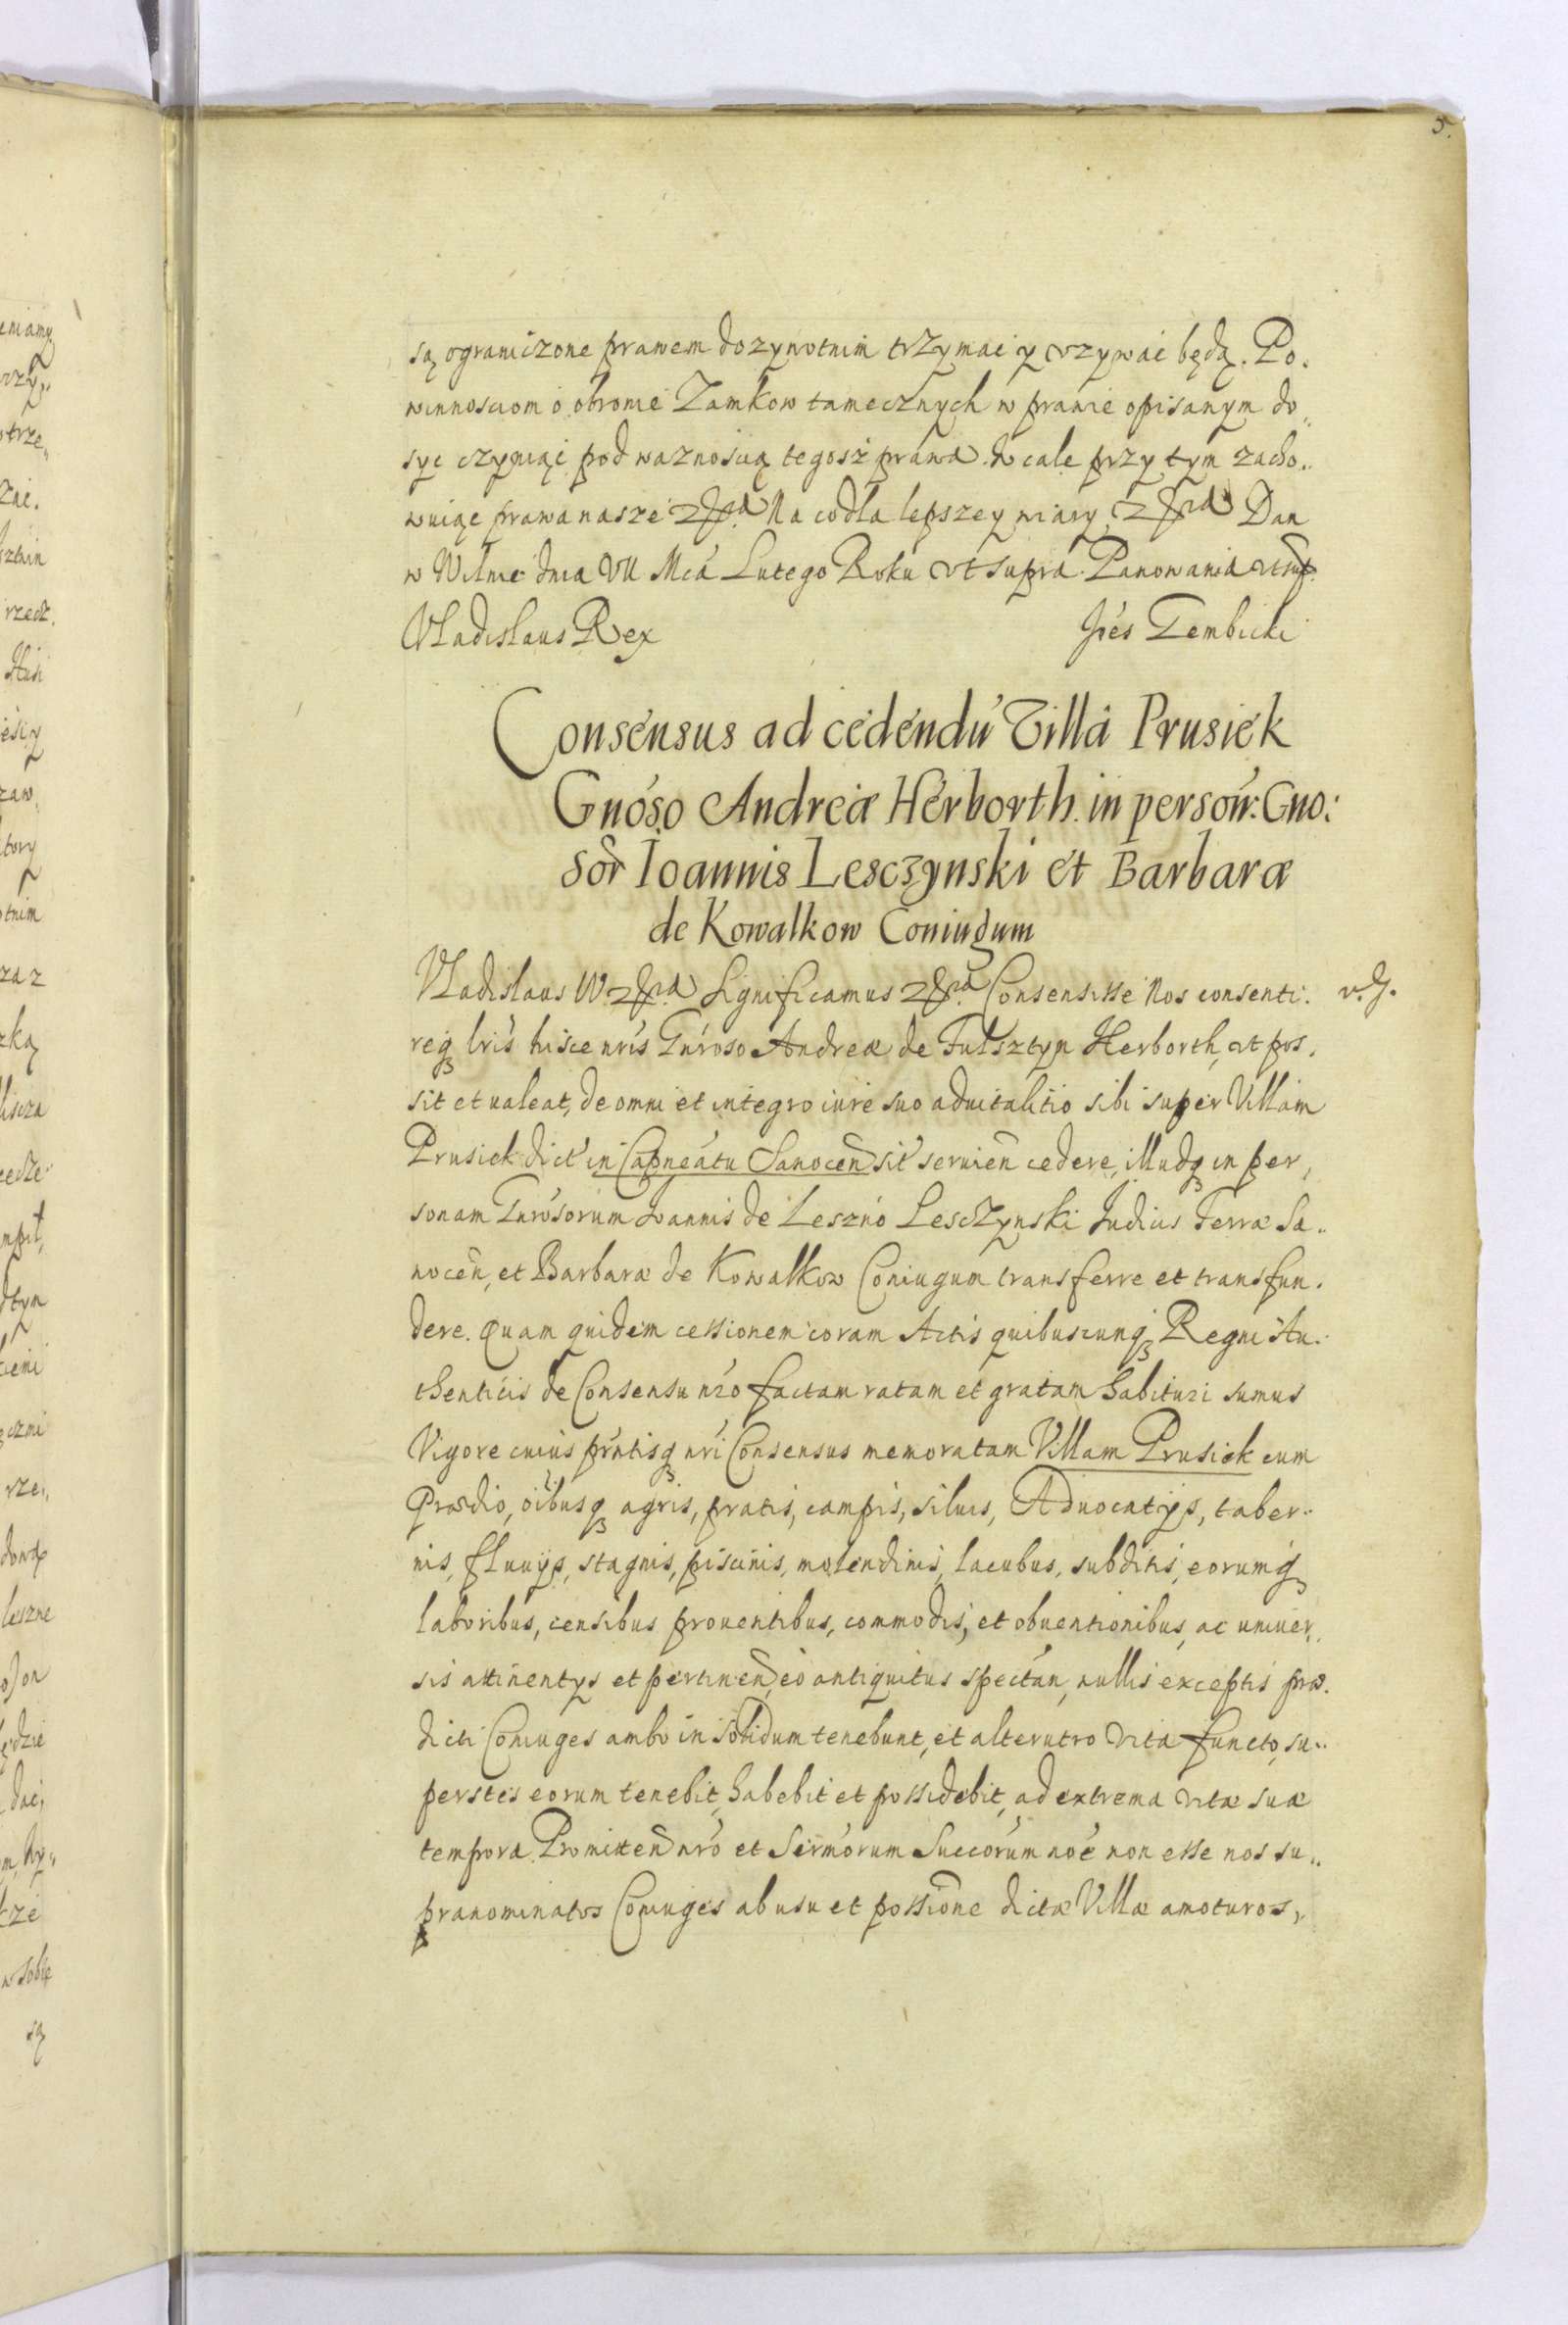 5.
są ograniczone prawem dozywotnim trzymac y vzywac będą. Po.
winnosciom o obronie Zamkow tamecznych w prawie opisanym do„
syc czyniąc pod waznoscią tegosz prawa. W cale przy tym zacho„
wuiąc prawa nasze Na co dla lepszey wiary, Dan
w Wilnie dnia VII Mca Lutego Roku vt supra. Panowania vt sup.
Vladislaus Rex
Tembicki
Consensus ad cedendū Villā Prusiek
Gnóso Andreæ Herborth in person: Gno:
sor Ioannis Lesczynski et Barbaræ
de Kowalkow Coniugum
Vladislaus IV Significamus Consensisse Nos consenti. v. g.
req lris hisce nris Gnroso Andreæ de Fulsztyn Herborth, vt pos,
sit et ualeat, de omni et integro iure suo aduitalitio sibi super Villam
Prusiek dict in Capneatu Sanocen sit seruien cedere, illudq in per,
sonam Gnrosorum Ioannis de Leszno Lesczynski Iudicis Terræ Sa„
nocen, et Barbaræ de Kowalkow Coniugum transferre et transfun.
dere. Quam quidem cessionem coram Actis quibuscunq Regni Au„
thenticis de Consensu nro factam ratam et gratam habituri sumus
Vigore cuius prntisq nri Consensus memoratam Villam Prusiek cum
Prædio, oibusq agris, pratis, campis, siluis, Aduocatijs, taber„
nis, fluuijs, stagnis, piscinis, molendinis, lacubus, subditis, eorumq
laboribus, censibus prouentibus, commodis, et obuentionibus, ac uniuer„
sis attinentys et pertinen, eo antiquitus spectan, nullis exceptis præ.
dicti Coniuges ambo in solidum tenebunt, et alterutro vita functo, su„
perstes eorum tenebit, habebit et possidebit, ad extrema vitæ suæ
tempora. Promitten nro et Sermorum Succorum noe non esse nos su„
pranominatos Coniuges ab usu et possione dictæ Villæ amoturos,